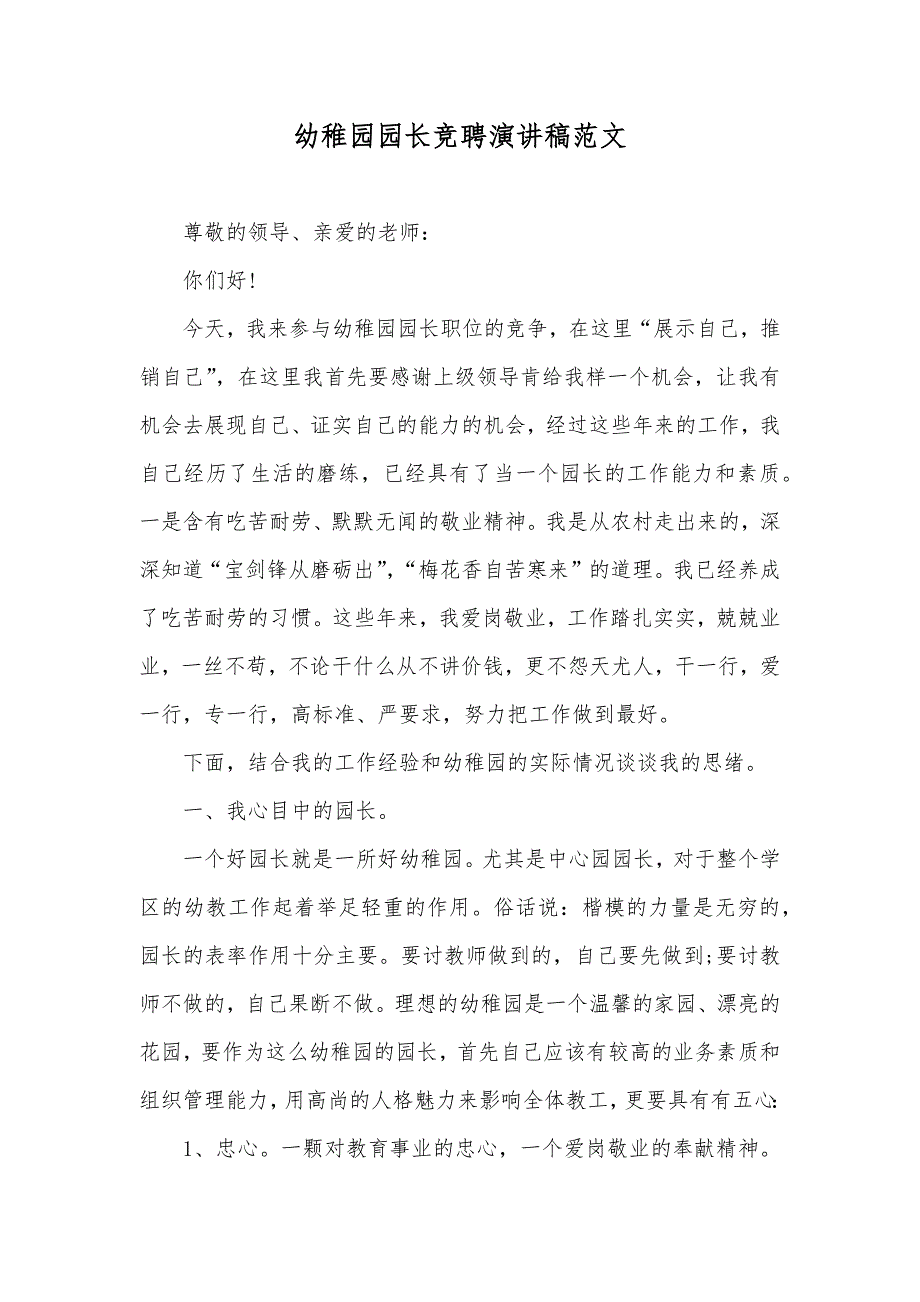 幼稚园园长竞聘演讲稿范文
尊敬的领导、亲爱的老师：
你们好！
今天，我来参与幼稚园园长职位的竞争，在这里“展示自己，推
销自己”，在这里我首先要感谢上级领导肯给我样一个机会，让我有
机会去展现自己、证实自己的能力的机会，经过这些年来的工作，我
自己经历了生活的磨练，已经具有了当一个园长的工作能力和素质。
一是含有吃苦耐劳、默默无闻的敬业精神。我是从农村走出来的，深
深知道“宝剑锋从磨砺出”，“梅花香自苦寒来”的道理。我已经养成
了吃苦耐劳的习惯。这些年来，我爱岗敬业，工作踏扎实实，兢兢业
业，一丝不苟，不论干什么从不讲价钱，更不怨天尤人，干一行，爱
一行，专一行，高标准、严要求，努力把工作做到最好。
下面，结合我的工作经验和幼稚园的实际情况谈谈我的思绪。
一、我心目中的园长。
一个好园长就是一所好幼稚园。尤其是中心园园长，对于整个学
区的幼教工作起着举足轻重的作用。俗话说：楷模的力量是无穷的，
园长的表率作用十分主要。要讨教师做到的，自己要先做到;要讨教
师不做的，自己果断不做。理想的幼稚园是一个温馨的家园、漂亮的
花园，要作为这么幼稚园的园长，首先自己应该有较高的业务素质和
组织管理能力，用高尚的人格魅力来影响全体教工，更要具有有五心：
1、忠心。一颗对教育事业的忠心，一个爱岗敬业的奉献精神。